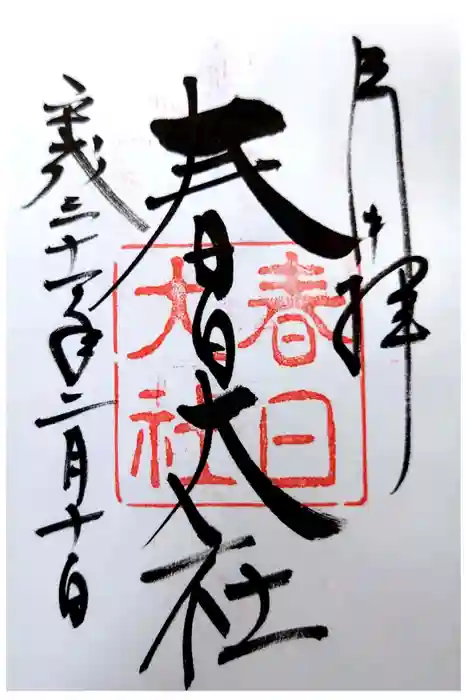 奉拝
春日大社
春日
大社
平成三十一年二月十日